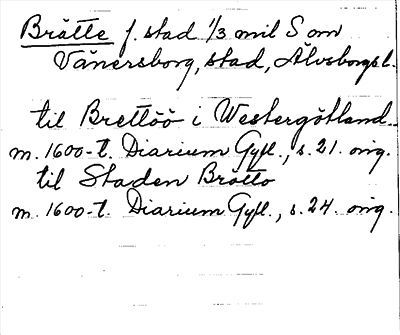 Brätte f. stad 1/3 mil S om
Vänersborg, stad, Älvsborgsl.
til Brettöö i Westergötland.
m. 1600-t. Diarium Gyll., s. 21. orig.
til Staden Brätto
m. 1600-t. Diarium Gyll., s. 24. orig.